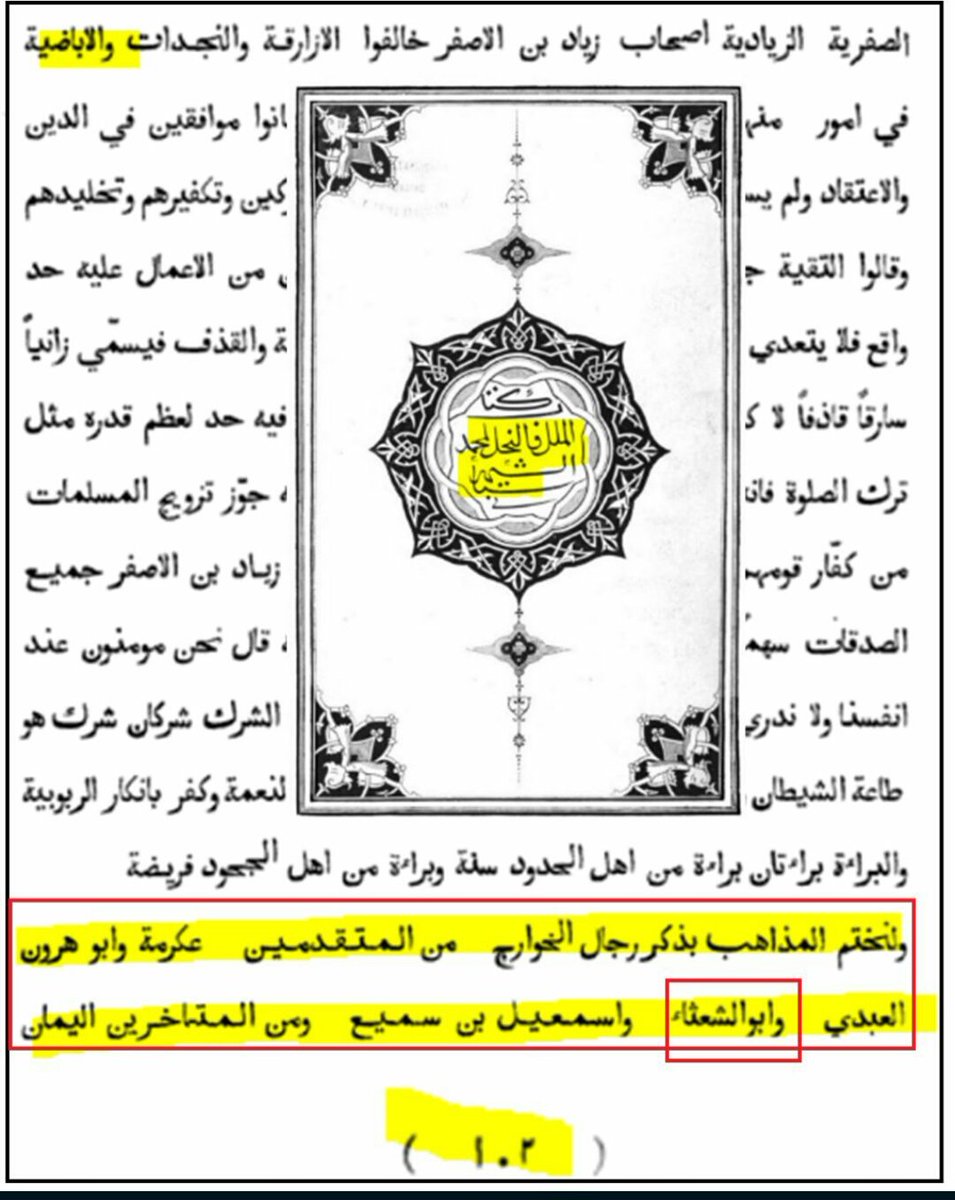 الصفرية الزيادية اصحاب زياد بن الاصفر خالفوا الازارقة والنجدات والاباضية
في امور منها انوا موافقين في الدين
والاعتقاد ولم يس ركين وتكفيرهم وتخليدهم
وقالوا التقية ج ن من الاعمال عليه حد
واقع فلا يتعدي ة والقذف فيسمّي زانياً
سارقاً قاذفاً لا ك فيه حد لعظم قدره مثل
ترك الصلوة فانه ه جوّز تزويج المسلمات
من كفّار قومهم زياد بن الاصفر جميع
الصدقات سهماً ه قال نحن مومنون عند
انفسنا ولا ندري الشرك شركان شرك هو
طاعة الشيطان لنعمة وكفر بانكار الربوبية
كتاب
الملل والنحل لمحمد
الشهرستاني
والبراءة براءتان براءة من اهل الحدود سنة وبراءة من اهل الجحود فريضة
ولنختم المذاهب بذكر رجال الخوارج من المتقدمين عكرمة وابو هرون
العبدي وابو الشعثاء واسمعيل بن سميع ومن المتاخرين اليمان
( ١٠٢ )